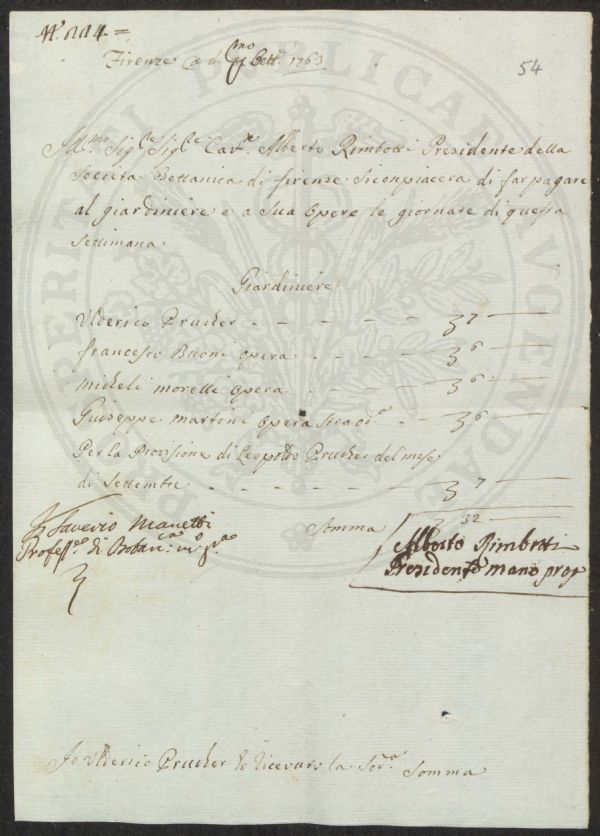 Nº. 114 =
Firenze A di pmo Ottre 1763
54
Illmo Sigre Sigre Cavre Alberto Rimbotti Presidente della
Società Bottanica di firenze si conpiacera di far pagare
al giardiniere e a sua Opere le giornate di questa
Settimana
Giardiniere
Ulderico Prucher - - - - 7
francesco Buoni opera - - - 6
Micheli morelli Opera - - - 6
Giuseppe Martini Opera Straodª - - 6
Per la Provisione di Leopoldo Prucher del mese
di Settembre - - - - 7
Somma 32
Saverio Manetti
Professre di Botanca
Alberto Rimbotti
Presidente mano propª
Io Ulderico Prucher ho ricevuto la Sodª Somma
PROSPERITATI PUBLICAE AUGENDAE